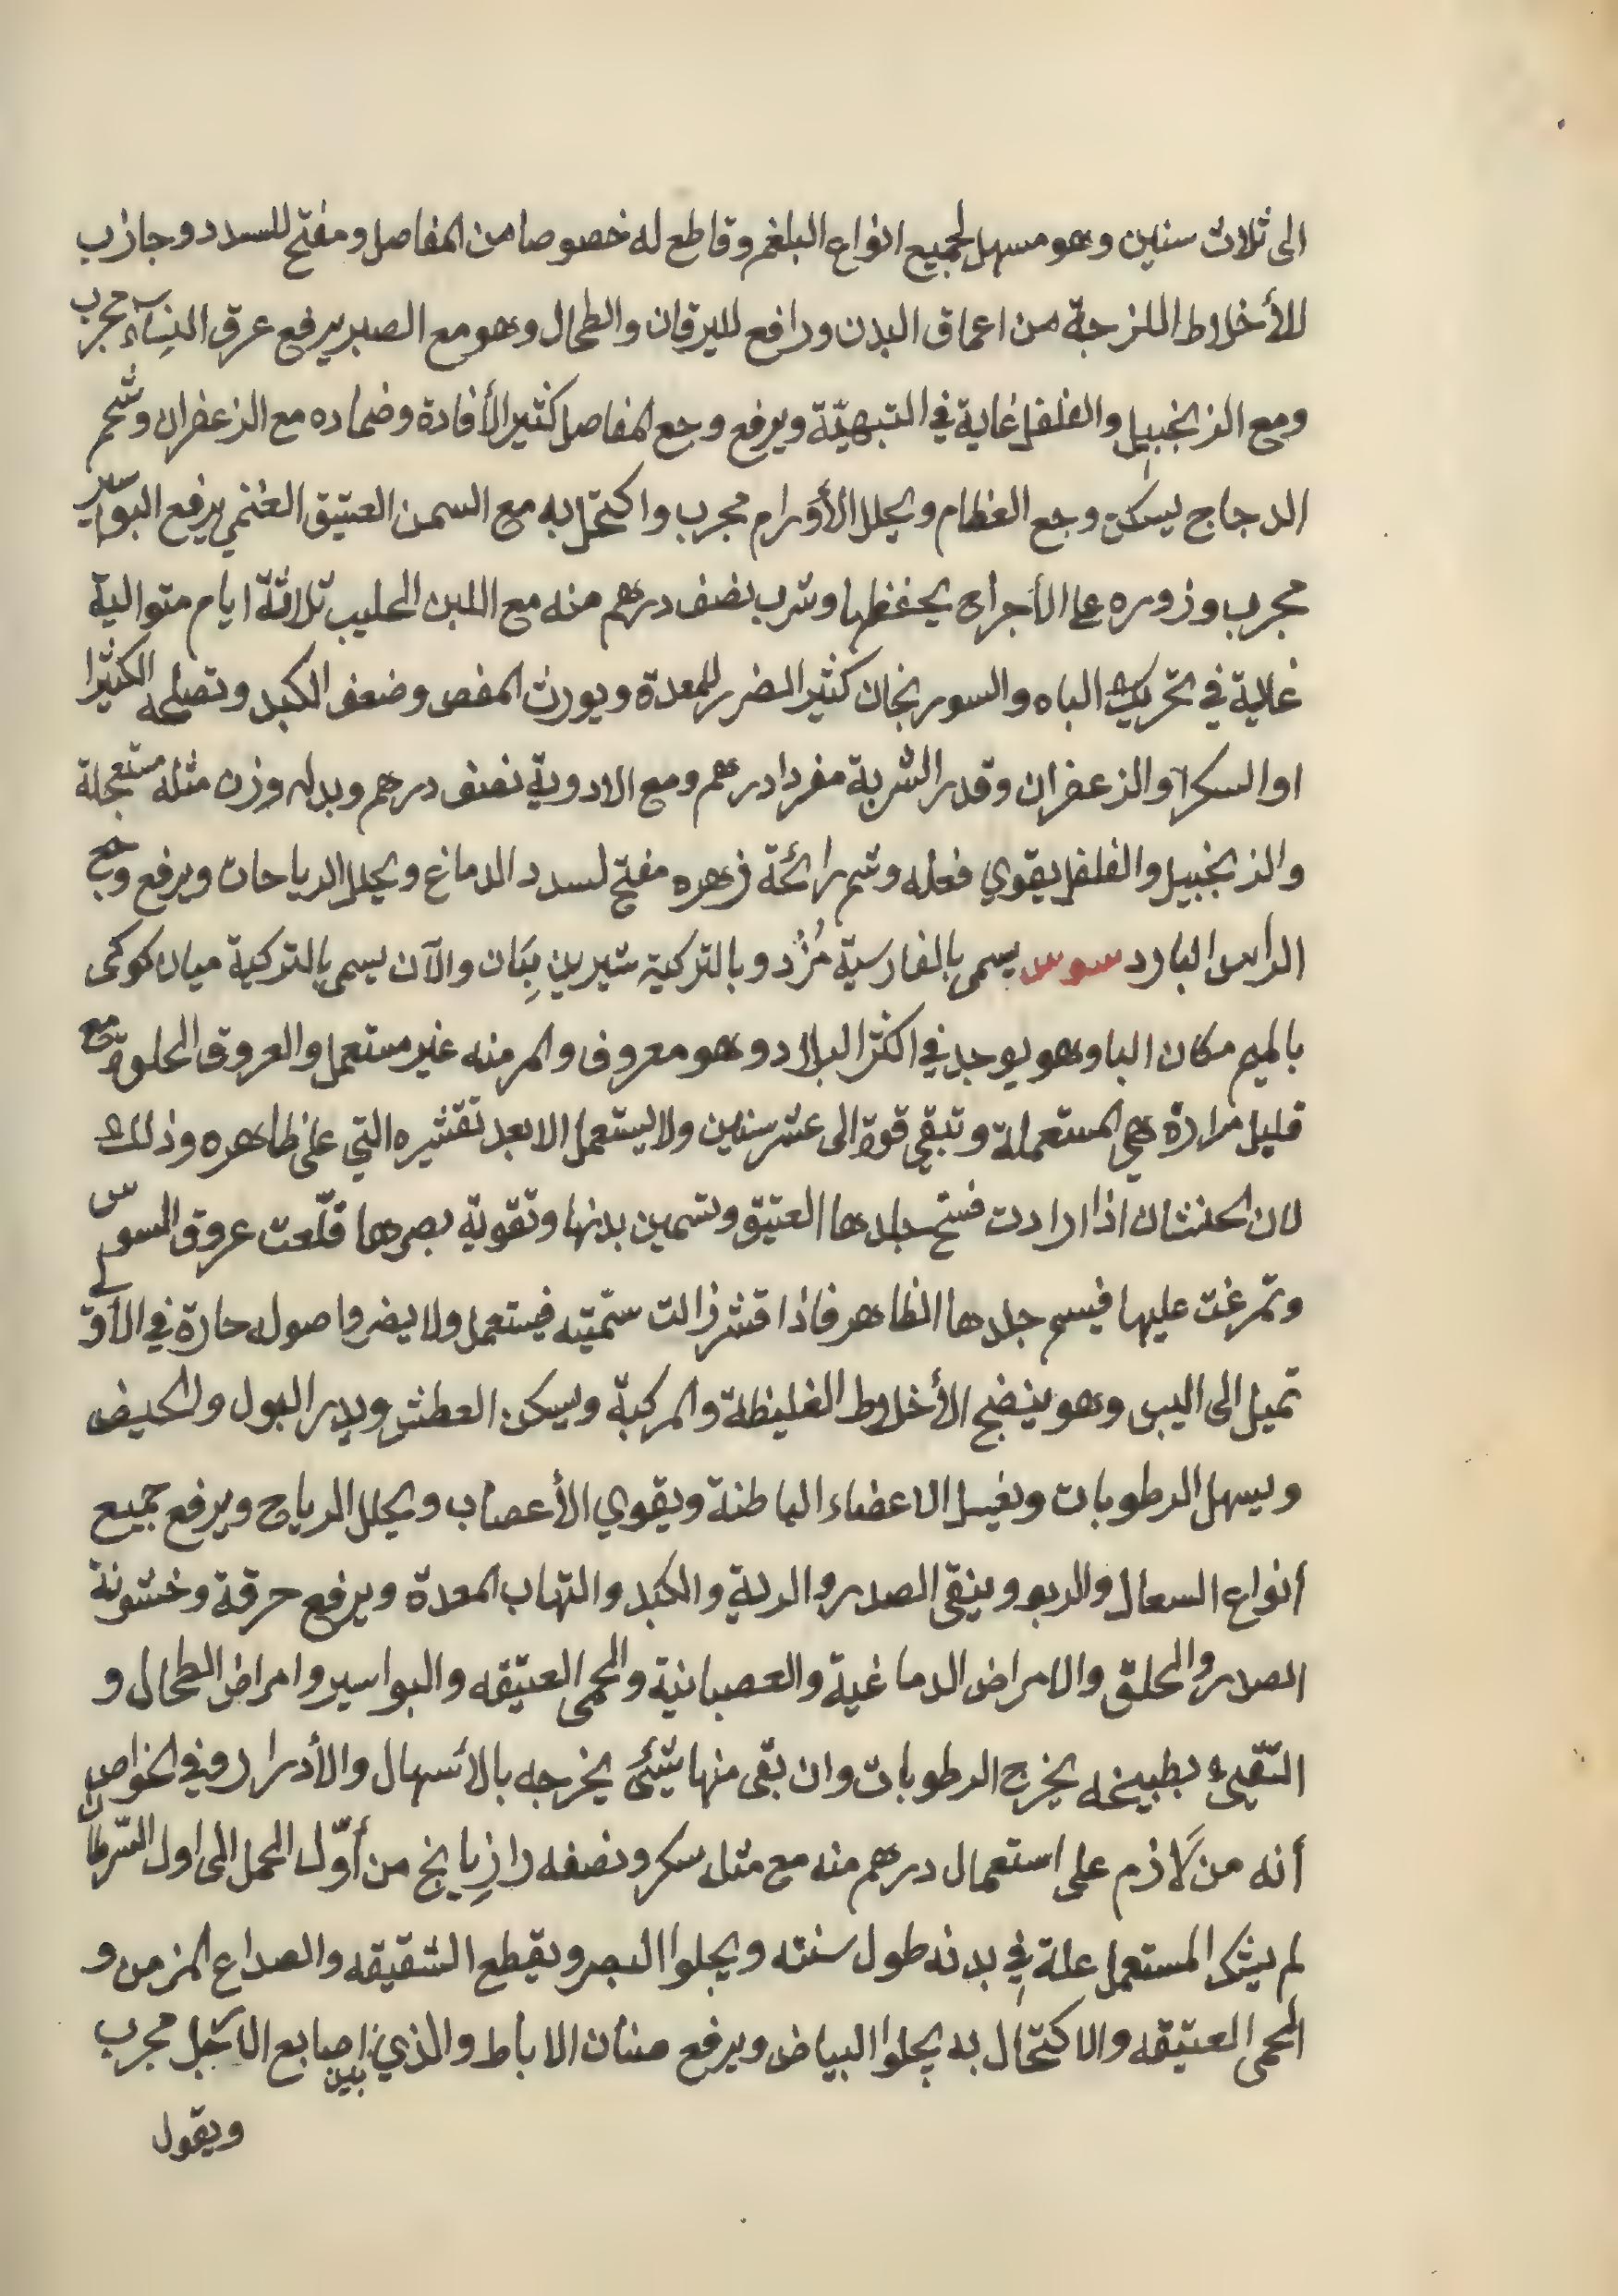 الى ثلاث سنين وهو مسهل لجميع انواع البلغم وقاطع له خصوصا من المفاصل ومفتح للسدد وجاذب
للأخلاط اللزجة من اعماق البدن ورافع لليرقان والطحال وهو مع الصبر يرفع عرق النساء مجرب
ومع الزنجبيل والفلفل غاية في التبهيّة ويرفع وجع المفاصل كثير الأفادة وضماده مع الزعفران وشحم
الدجاج يسكن وجع العظام ويحلل الأورام مجرب واكتحل به مع السمن العتيق الغنمي يرفع البواسير
مجرب وزوره على الأجراح يحففها وشرب نصف درهم منه مع اللبن الحليب ثلاثة ايام متوالية
غاية في تحريك الباه والسورنجان كثير الضرر للمعدة ويورث المغص وضعف الكبد وتصلحه الكثيرا
او السكر او الزعفران وقدر الشربة مفردا درهم ومع الادوية نصف درهم وبدله وزن مثله مستعجلة
والزنجبيل والفلفل يقوي فعله وشم رائحة زهره مفتح لسدد الدماغ ويحلل الرياحات ويرفع وجع
الرأس البارد سوس يسمى بالفارسية مُژْد وبالتركية شيرين بِيَان والآن يسمى بالتركية ميان كوكى
بالميم مكان البا وهو يوجد في اكثر البلاد وهو معروف والمر منه غير مستعمل والعروق الحلوة مع
قليل مرارة هي المستعملة وتبقى قوة الى عشر سنين ولا يستعمل الا بعد تقشيره التي على ظاهره وذلك
لان الحنشان اذا ارادت فسخ جلدها العتيق وتسمين بدنها وتقوية بصرها قلّعت عروق السوس
وتمرغت عليها فيسم جلدها الظاهر فاذا قشر زالت سمّيته فيستعمل ولا يضر واصوله حارة في الأولى
تميل الى اليبس وهو ينضج الأخلاط الغليظة والمركبة ويسكن العطش ويدر البول والحيض
ويسهل الرطوبات ويغسل الاعضاء الباطنة ويقوي الأعصاب ويحلل الرياح ويرفع جميع
أنواع السعال والربو وينقى الصدر والرية والكبد والتهاب المعدة ويرفع حرقة وخشونة
الصدر والحلق والامراض الدماغية والعصبانية والحمى العتيقه والبواسير وامراض الطحال و
التقيئ بطبيخه يخرج الرطوبات وان بقى منها شيئى يخرجه بالأسهال والأدرار وفي الخواص
أنه من لَازم على استعمال درهم منه مع مثله سكر ونصفه رازِيانج من أوّل الحمل الى اول السّرطان
لم يشك المستعمل علة في بدنه طول سنته ويجلوا البصر ويقطع الشقيقه والصداع المزمن و
الحمى العتيقه والاكتحال به يجلوا البياض ويرفع صنان الاباط والذي بين اصابع الأرجل مجرب
ويقول